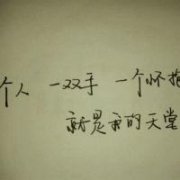 个人 一双手 一个怀抱
就是我的天堂